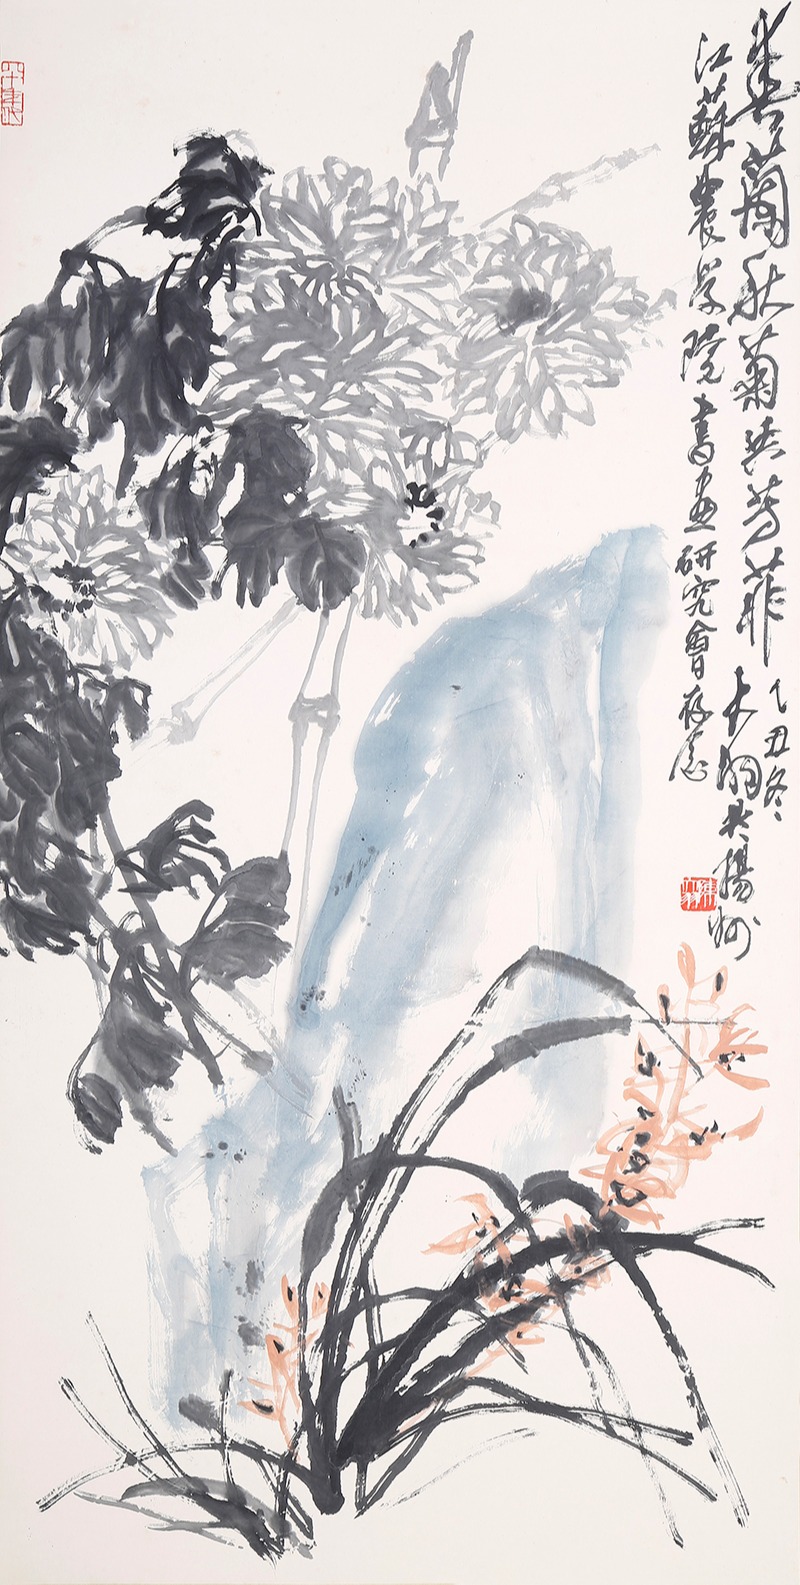 春蘭秋菊共芳菲
乙丑冬大羽於揚州
江蘇農學院書畫研究會存念